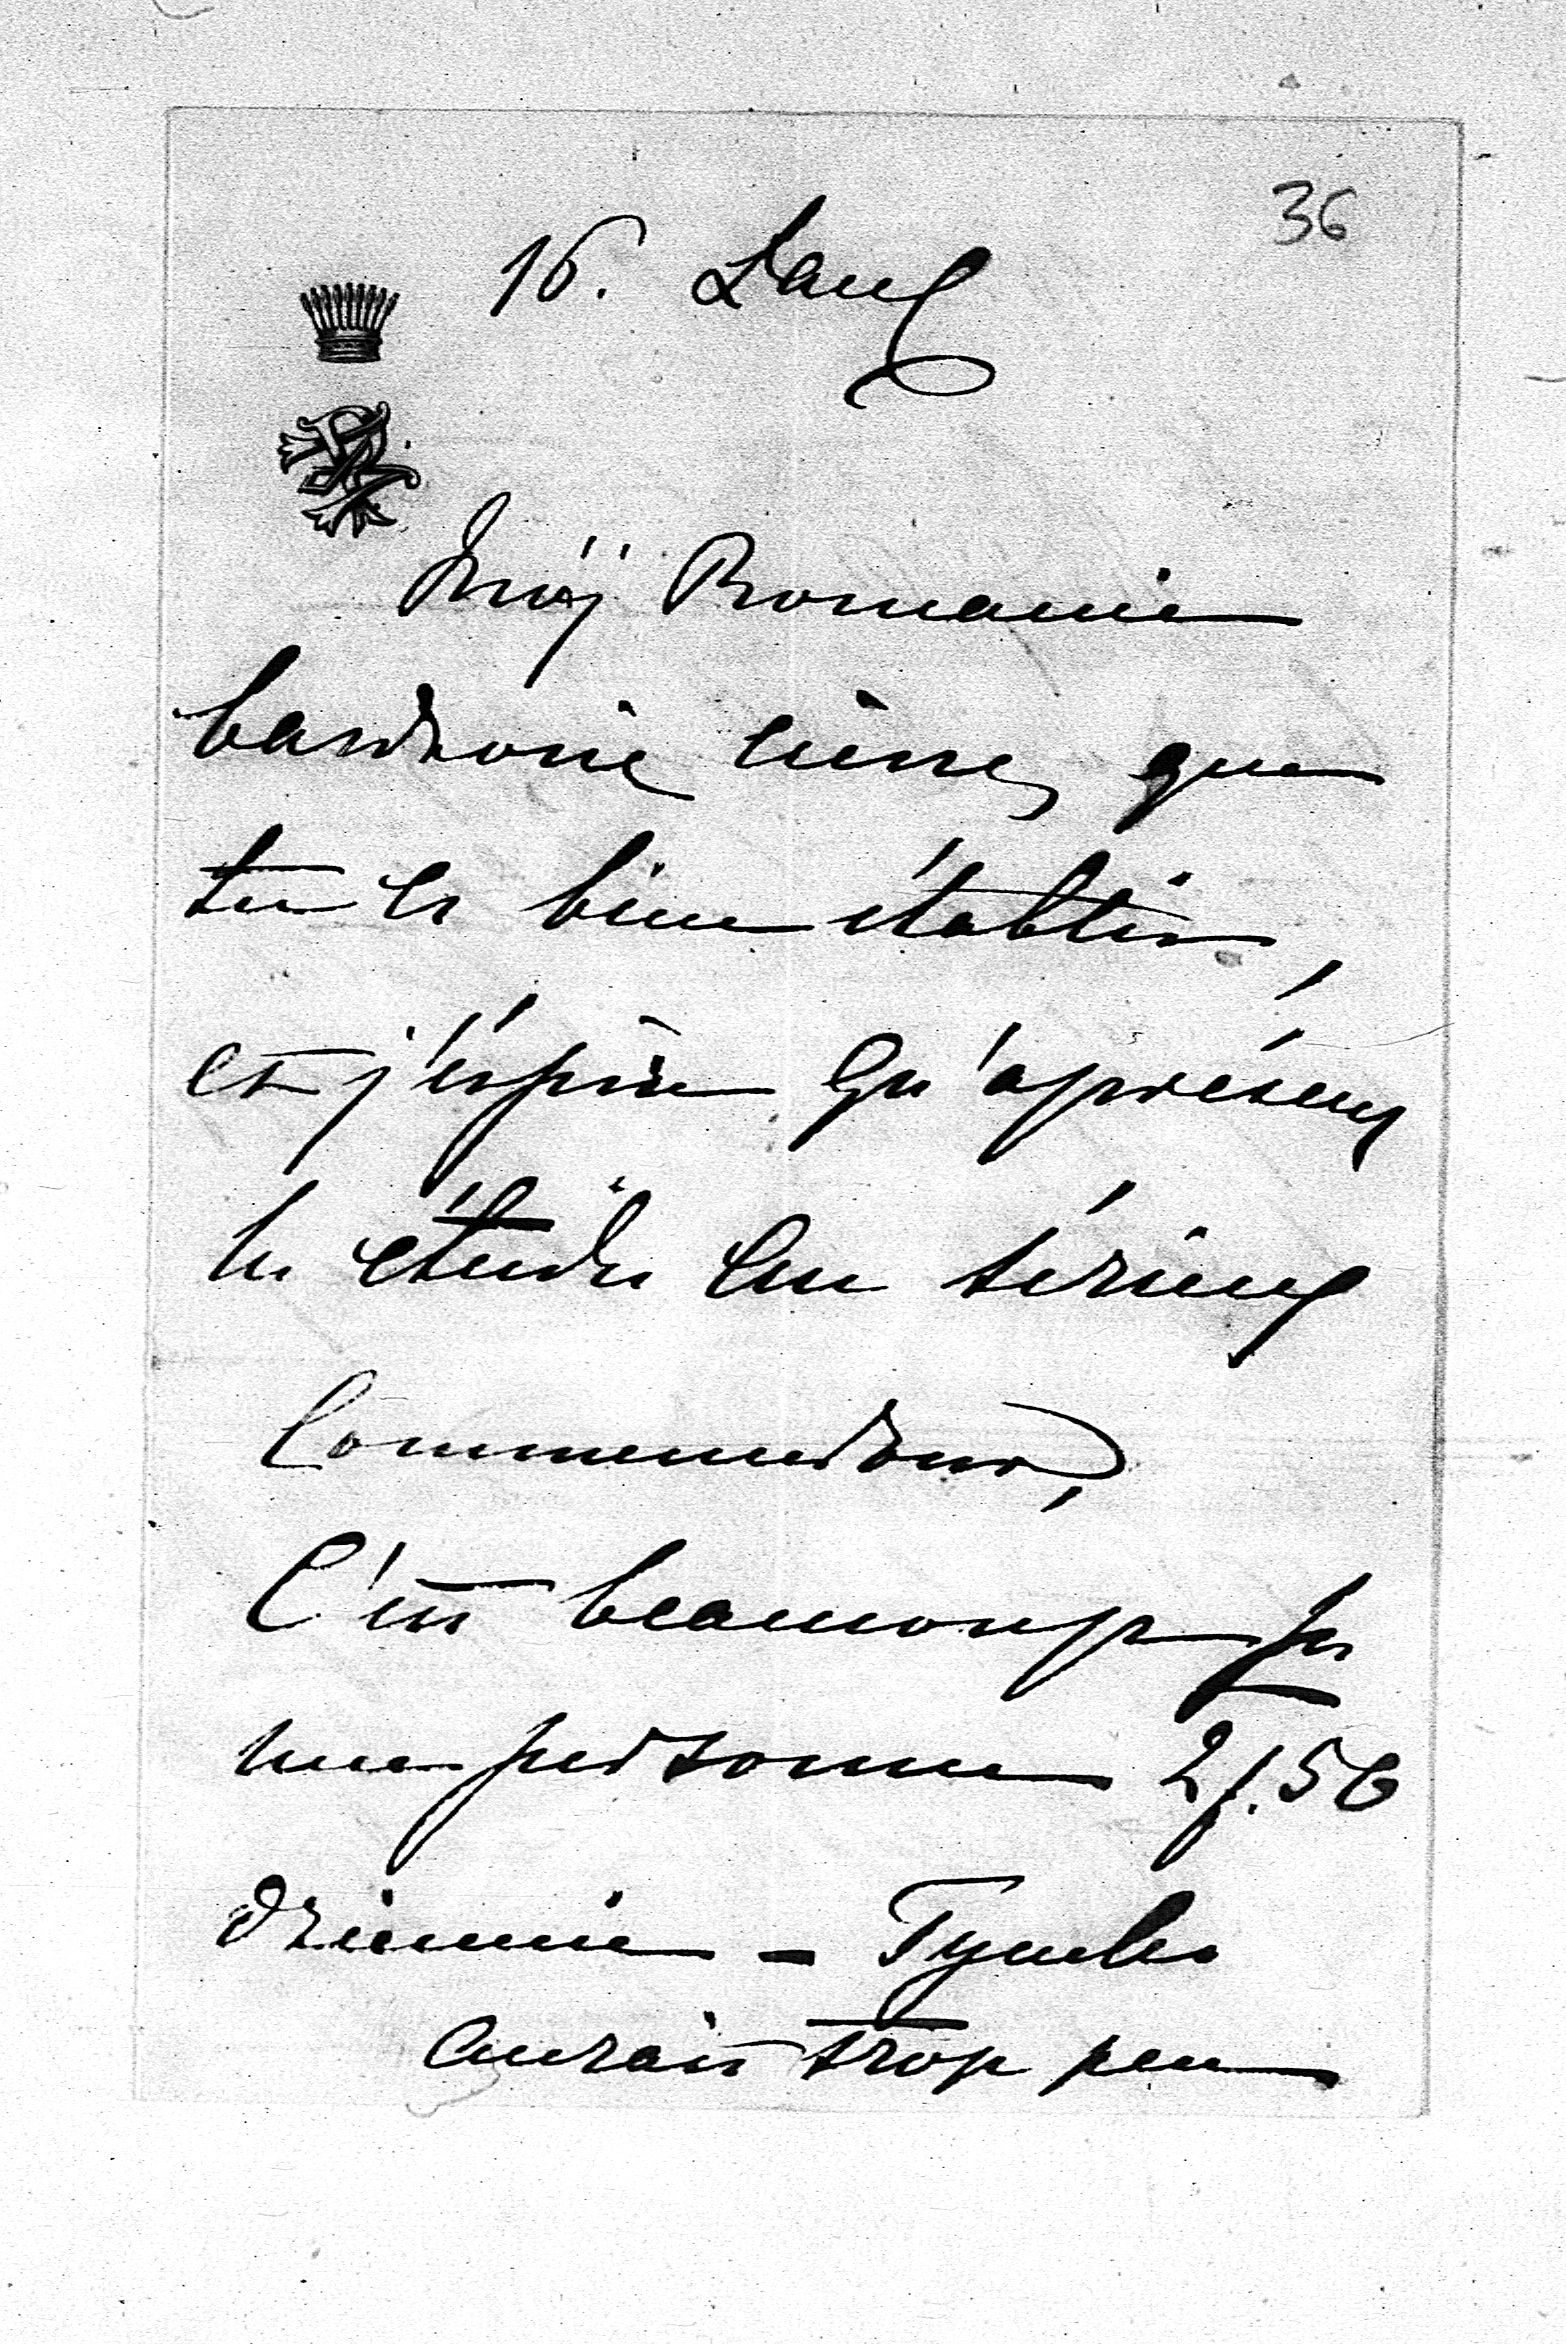 36
16. Lanc
Mój Romanie
bardzom się cieszę que
tu es bien établi,
et j'éspère qu'aprésent
les études en sérieux
Commenceront,
C'est beaucoup par
une personne 2 f. 50
dziennie – Tymbo
aurais trop peu